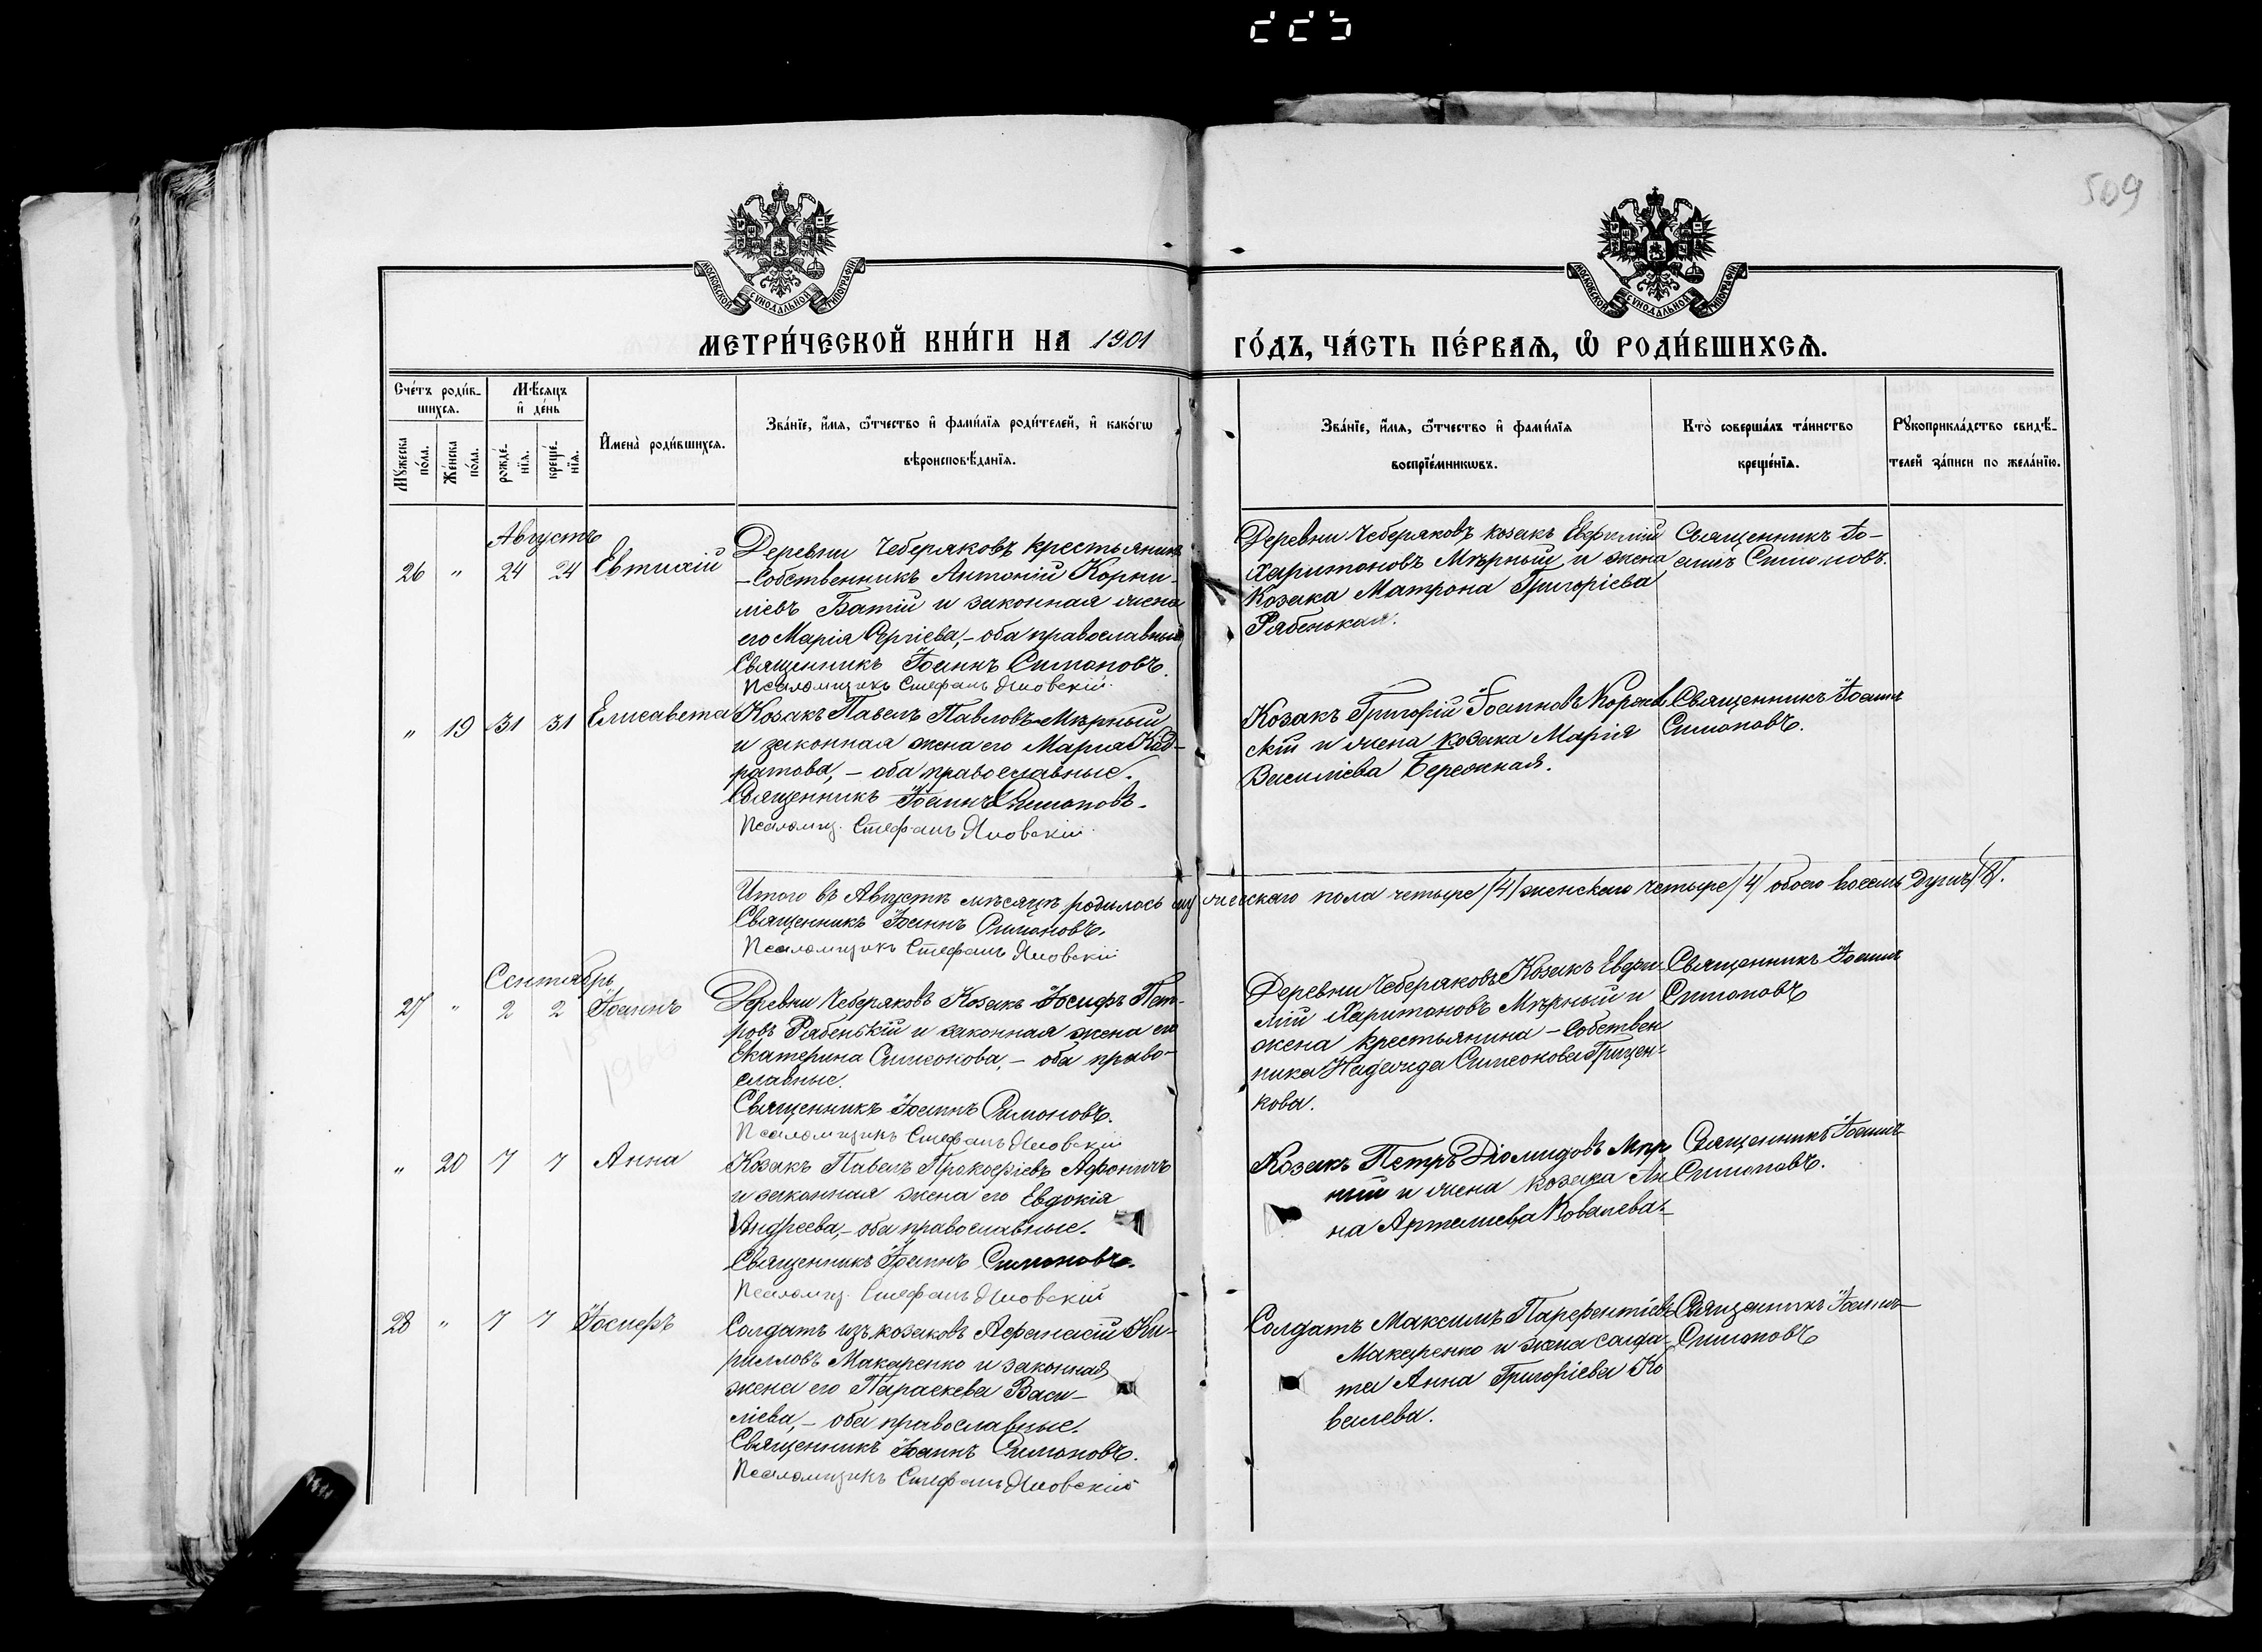 509
МОСКОВСКОЙ СѴНОДАЛЬНОЙ ТИПОГРАФІИ
МОСКОВСКОЙ СѴНОДАЛЬНОЙ ТИПОГРАФІИ
МЕТРИ́ЧЕСКОЙ КНИ́ГИ НА 1901
ГО́ДЪ, ЧА́СТЬ ПЕ́РВАѦ, Ѡ҆ РОДИ́ВШИХСѦ.
Сче́тъ роди́в-
шихсѧ.
Мѣ́сѧцъ
и҆ де́нь
Мꙋ́жеска
по́ла.
Же́нска
по́ла.
рожде́-
нїѧ.
креще́-
нїѧ.
И҆мена̀ роди́вшихсѧ.
Зва́нїе, и҆́мѧ, ѻ҆́тчество и҆ фами́лїѧ роди́телей, и҆ како́гѡ
вѣроисповѣ́данїѧ.
Зва́нїе, и҆́мѧ, ѻ҆́тчество и҆ фами́лїѧ
воспрїе́мникѡвъ.
Кто̀ соверша́лъ та́инство
креще́нїѧ.
Рꙋкоприкла́дство свидѣ́-
телей за́писи по жела́нїю.
Августъ
26 " 24 24 Евтихій
Деревни Чеберяковъ крестьянинъ
-собственникъ Антоній Корни-
ліевъ Батій и законная жена
его Марія Сергіева,- оба православные
Священникъ Іоаннъ Симоновъ.
Псаломщикъ Стефанъ Яновскій.
Деревни Чеберяковъ козакъ Евфимій
Харитоновъ Мѣрный и жена
козака Матрона Григоріева
Рябенькая.
Священникъ Іо-
аннъ Симоновъ.
" 19 31 31 Елисавета
Козакъ Павелъ Павловъ Мѣрный
и законная жена его Марія Код-
ратова, - оба православные.
Священникъ Іоаннъ Симоновъ.
Псаломщ. Стефанъ Яновскій.
Козакъ Григорій Іоанновъ
скій и жена козака Марія
Василіева Бережная.
Священникъ Іоаннъ
Симоновъ.
Итого въ Августѣ мѣсяцѣ родилось мужескаго пола четыре /4/ женскаго четыре /4/ обоего восемь душъ /8/.
Священникъ Іоаннъ Симоновъ.
Псаломщикъ Стефанъ Яновскій
Сентябрь
27 " 2 2 Іоаннъ
Деревни Чеберяковъ Козакъ Іосифъ Пет-
ровъ Рябенькій и законная жена его
Екатерина Симеонова, - оба право-
славные.
Священникъ Іоаннъ Симоновъ.
Псаломщикъ Стефанъ Яновскій
Деревни Чеберяковъ Козакъ Евфи-
мій Харитоновъ Мѣрный и
жена крестьянина - собствен
ника Надежда Симеонова Грицен-
кова.
Священникъ Іоаннъ
Симоновъ
" 20 7 7 Анна
Козакъ Павелъ Прокофіевъ Афоничъ
и законная жена его Евдокія
Андреева,- оба православные.
Священникъ Іоаннъ Симоновъ.
Псаломщ. Стефанъ Яновскій
Козакъ Петръ Діомидовъ Мѣр
ный и жена козака Ан
на Артемиева Ковалева.
Священникъ Іоаннъ
Симоновъ.
28 " 7 7 Іосифъ
Солдатъ изъ козаковъ Афанасій Ки-
рилловъ Макаренко и законная
жена его Параскева Васи-
ліева,- оба православные.
Священникъ Іоаннъ Симоновъ.
Псаломщикъ Стефанъ Яновскій
Солдатъ Максимъ Парфентіевъ
Макаренко и жена солда-
та Анна Григоріева Ко
валева.
Священникъ Іоаннъ
Симоновъ